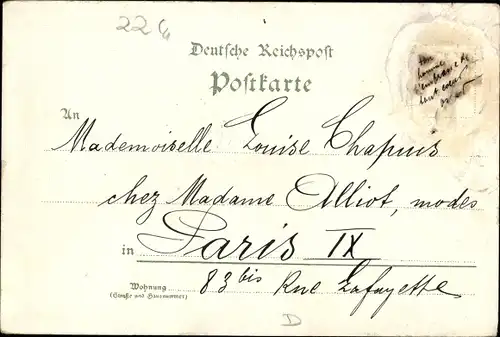 22
Deutsche Reichspost
Postkarte
An
Mademoiselle Louise Chapuis
chez Madame Alliot, modes
in Paris IX
Wohnung
(Straße und Hausnummer)
83 bis Rue Lafayette
D